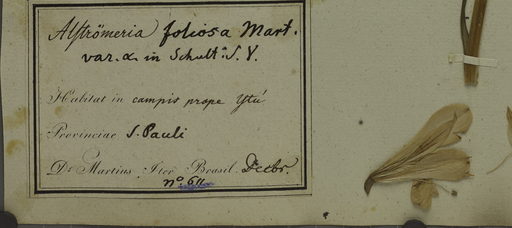 Alströmeria foliosa Mart.
var. α. in Schult. S. V.
Habitat in campis prope Ytú
Provinciae S. Pauli
Dr Martius Iter Brasil. Decbr.
no 611